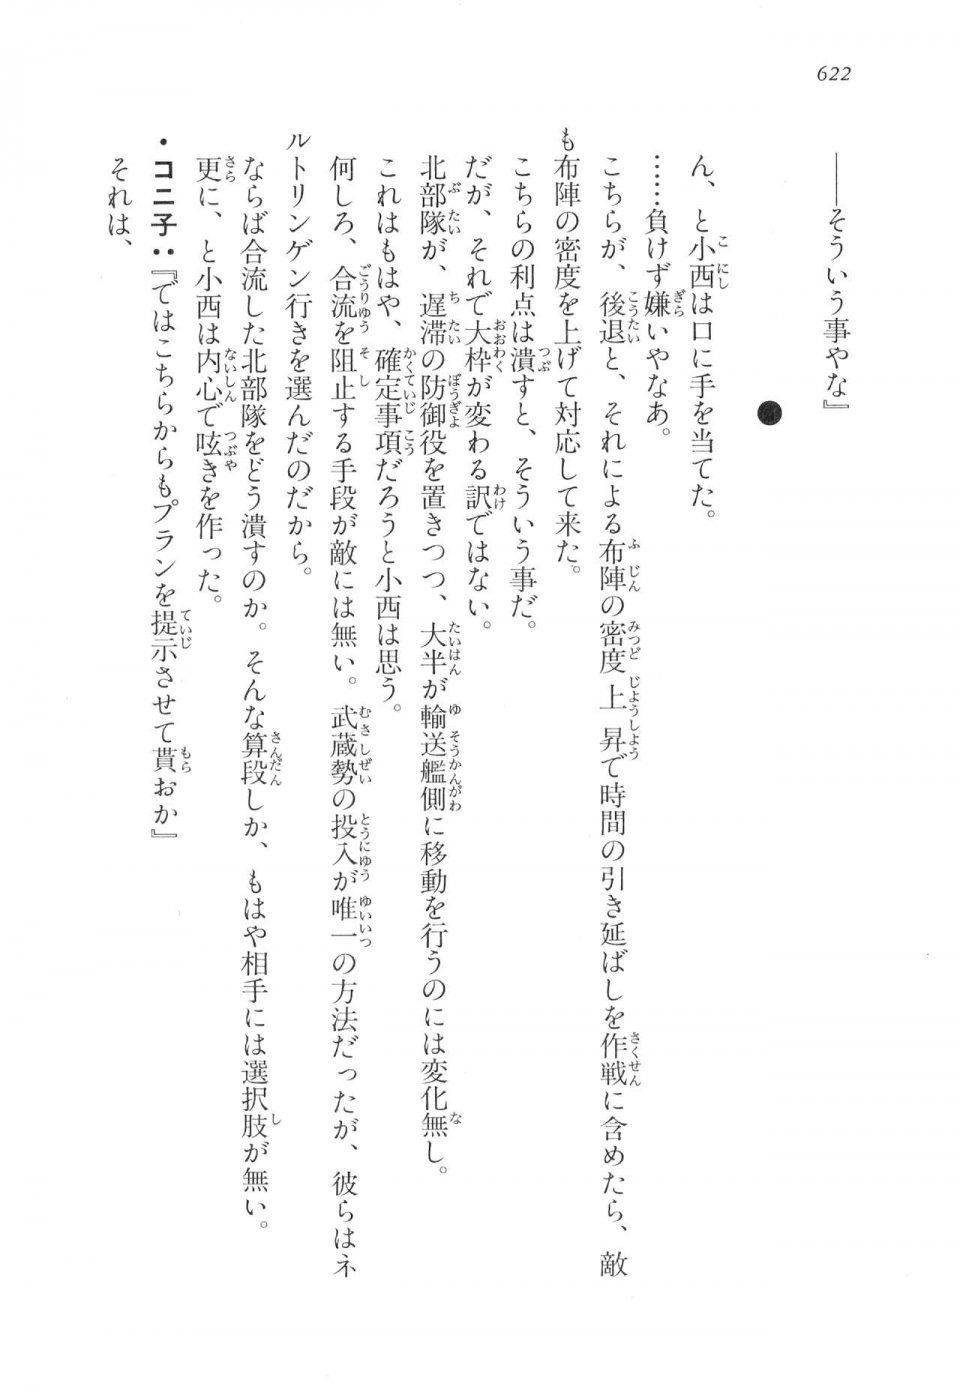 622
――そういう事やな』
●
ん、と小西は口に手を当てた。
……負けず嫌いやなあ。
こちらが、後退と、それによる布陣の密度上昇で時間の引き延ばしを作戦に含めたら、敵
も布陣の密度を上げて対応して来た。
こちらの利点は潰すと、そういう事だ。
だが、それで大枠が変わる訳ではない。
北部隊が、遅滞の防御役を置きつつ、大半が輸送艦側に移動を行うのには変化無し。
これはもはや、確定事項だろうと小西は思う。
何しろ、合流を阻止する手段が敵には無い。武蔵勢の投入が唯一の方法だったが、彼らはネ
ルトリンゲン行きを選んだのだから。
ならば合流した北部隊をどう潰すのか。そんな算段しか、もはや相手には選択肢が無い。
更に、と小西は内心で呟きを作った。
・コニ子：『ではこちらからもプランを提示させて貰おか』
それは、